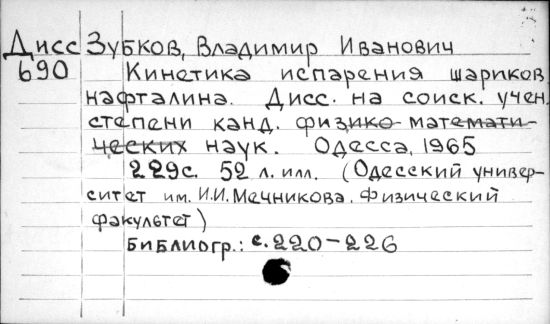 Дисс Зубков, Владимир Иванович
690 Кинетика испарения шариков
нафталина. Дисс. на соиск. учен.
степени канд. физико-математи-
ческих наук. Одесса, 1965
229с. 52 л. илл. (Одесский универ-
ситет им. И.И. Мечникова. Физический
факультет)
Библиогр.: с. 220-226